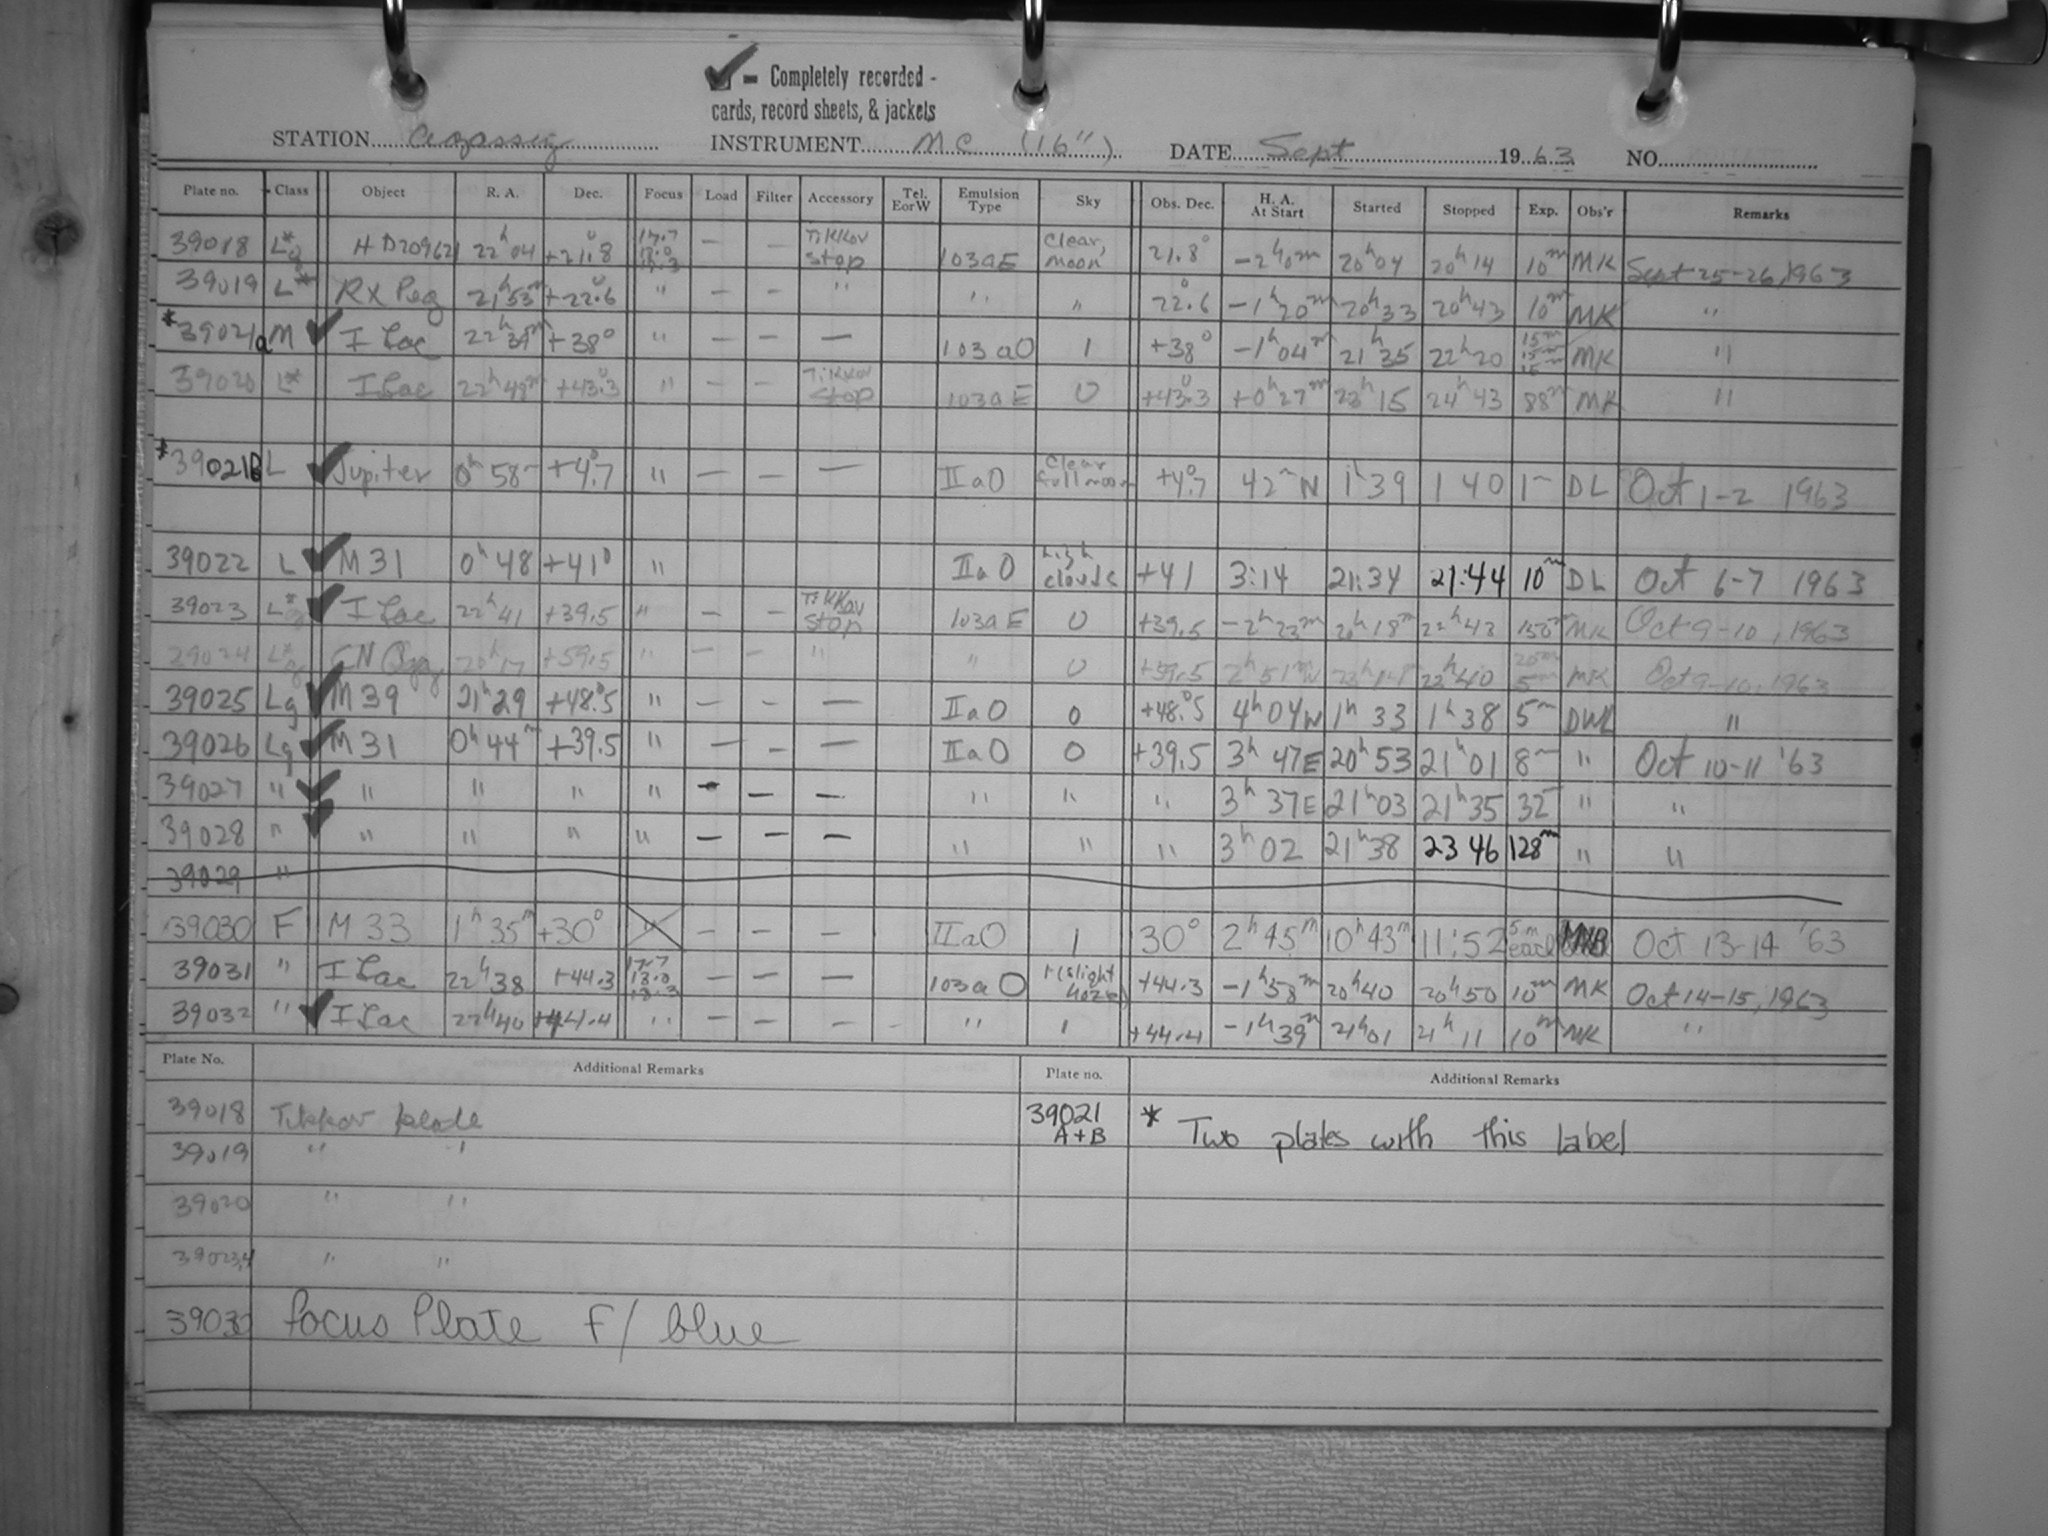 ✓ - Completely recorded -
cards, record sheets, & jackets
STATION Agassiz INSTRUMENT MC (16") DATE Sept 1963 NO.
Plate no. Class Object R. A. Dec. Focus Load Filter Accessory Tel. E or W Emulsion Type Sky Obs. Dec. H. A. At Start Started Stopped Exp. Obs'r Remarks
39018 L* HD209621 22h 04 +21.8 17.7 18.0 18.3 — — Tikkov stop 103aE Clear, moon 21.8° -2h 0m 20h04 20h14 10m MK Sept 25-26, 1963
39019 L* RX Peg 21h53m +22.6 " — — " " " 22.6 -1h 20m 20h33 20h43 10m MK "
*39021a M ✓ I Lac 22h39m +38° " — — — 103aO 1 +38° -1h04m 21h35 22h20 15m 15m 15m MK "
39020 L* I Lac 22h48m +43.3 " — — Tikkov stop 103aE 0 +43.3 +0h27m 23h15 24h43 88m MK "
*39021B L ✓ Jupiter 0h 58m +4.7 " — — — IIaO Clear full moon +4.7 42m W 1h39 1 40 1m DL Oct 1-2 1963
39022 L ✓ M31 0h 48 +41° " IIaO high clouds +41 3:14 21:34 21:44 10m DL Oct 6-7 1963
39023 L* ✓ I Lac 22h41 +39.5 " — — Tikkov stop 103aE 0 +39.5 -2h23m 20h18m 22h42 MK Oct 9-10, 1963
39024 L* CN 20h17 +59.5 " — — " " 0 +59.5 2h51m W 22h40 20m 5m MK Oct 9-10, 1963
39025 Lg ✓ M39 21h29 +48.5 " — — — IIaO 0 +48.5 4h04W 1h 33 1h38 5m DWL "
39026 Lg ✓ M31 0h44m +39.5 " — — — IIaO 0 +39.5 3h 47E 20h53 21h01 8m " Oct 10-11 '63
39027 " ✓ " " " " — — — " " " 3h 37E 21h03 21h35 32 " "
39028 " ✓ " " " " — — — " " " 3h 02 21h38 23 46 128m " "
39029 "
39030 F M33 1h35m +30° " — — — IIaO 1 30° 2h45m 10h43m 11:52 5m each Oct 13-14 '63
39031 " I Lac 22h38 +44.3 17.7 18.0 18.3 — — — 103aO 1 (slight haze) +44.3 -1h58m 20h40 20h50 10m MK Oct 14-15, 1963
39032 " ✓ I Lac 22h40 +44.4 " — — — " 1 +44.4 -1h39m 21h01 21h11 10m MK "
Plate No. Additional Remarks Plate no. Additional Remarks
39018 Tikkov plate 39021 A+B * Two plates with this label
39019 " "
39020 " "
39023,4 " "
Focus Plate F/ blue